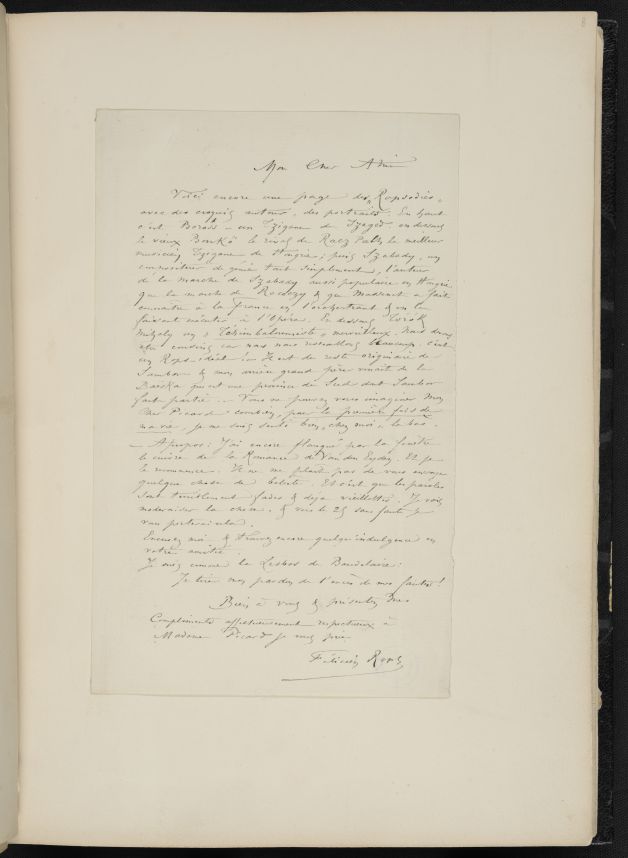 8
Mon Cher Ami
Voici encore une page des "Rapsodies"
avec des croquis autour, des portraits. En haut
c'est Boross - un Tzigane de Szeged, en dessous
le vieux Bonkó le rival de Racz Pal, le meilleur
musicien Tzigane de Hongrie; puis Szabady, un
compositeur de génie tout simplement, l'auteur
de la marche de Szabady aussi populaire en Hongrie
que la marche de Racoczy & que Massenet a fait
connaitre à la France en l'orchestrant & en la
faisant exécuter à l'Opéra. En dessous Török
Mihaly un "Tchimbaloumiste" merveilleux. Nous devons
être cousins car nous nous ressemblons beaucoup. c'est
un Rops idéal! Il est du reste originaire de
Sombor & mon arrière grand père venait de la
Bacska qui est une province du Sud dont Sombor
fait partie. Vous ne pouvez vous imaginer Mon
Cher Picard combien, pour la première fois de
ma vie, je me suis senti bon, chez moi, là bas.
- Apropos: J'ai encore flanqué par la fenêtre
le cuivre de la Romance de Van der Eyden. Et je
le recommence. Il ne me plait pas de vous envoyer
quelque chose de bébête. Et c'est que les paroles
sont terriblement fades & déja vieillottes. Je vais
moderniser la chose. & vers le 25 sans faute je
vous porterai cela.
Excusez moi & trouvez encore quelque indulgence en
votre amitié.
Je suis comme la Lesbos de Baudelaire:
Je tire mon pardon de l'excès de mes fautes!
Bien à vous & présentez mes
Compliments affectueusement respectueux à
Madame Picard je vous prie.
Félicien Rops